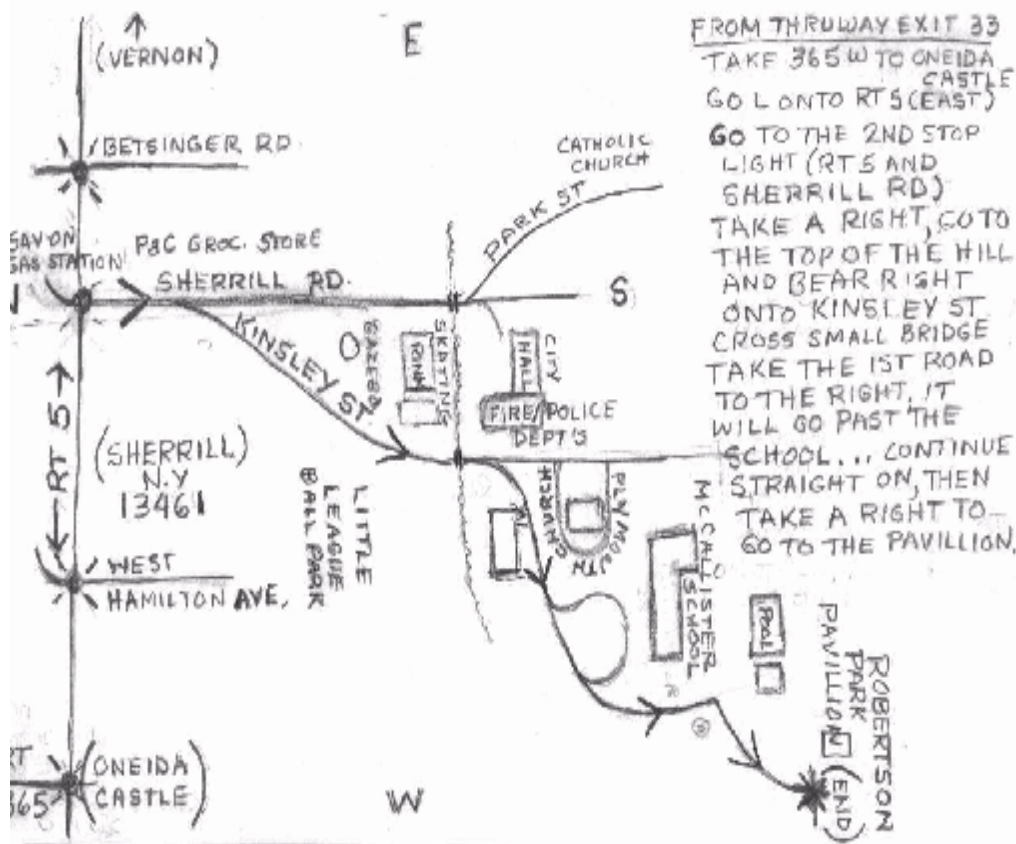 (VERNON)
E
BETSINGER RD.
CATHOLIC
CHURCH
PARK ST
SAVON
GAS STATION
P&C GROC. STORE
SHERRILL RD.
N
S
KINSLEY ST.
GAZEBO
SKATING
RINK
CITY
HALL
FIRE/POLICE
DEPT'S
RT 5
(SHERRILL)
N.Y
13461
LITTLE
LEAGUE
BALL PARK
PLYMOUTH
CHURCH
McCALLISTER
SCHOOL
WEST
HAMILTON AVE.
POOL
ROBERTSON
PARK
PAVILLION
(END)
RT
365
(ONEIDA
CASTLE)
W
FROM THRUWAY EXIT 33
TAKE 365 W TO ONEIDA
CASTLE
GO L ONTO RT 5 (EAST)
GO TO THE 2ND STOP
LIGHT (RT 5 AND
SHERRILL RD)
TAKE A RIGHT, GO TO
THE TOP OF THE HILL
AND BEAR RIGHT
ONTO KINSLEY ST.
CROSS SMALL BRIDGE
TAKE THE 1ST ROAD
TO THE RIGHT. IT
WILL GO PAST THE
SCHOOL... CONTINUE
STRAIGHT ON, THEN
TAKE A RIGHT TO
GO TO THE PAVILLION.